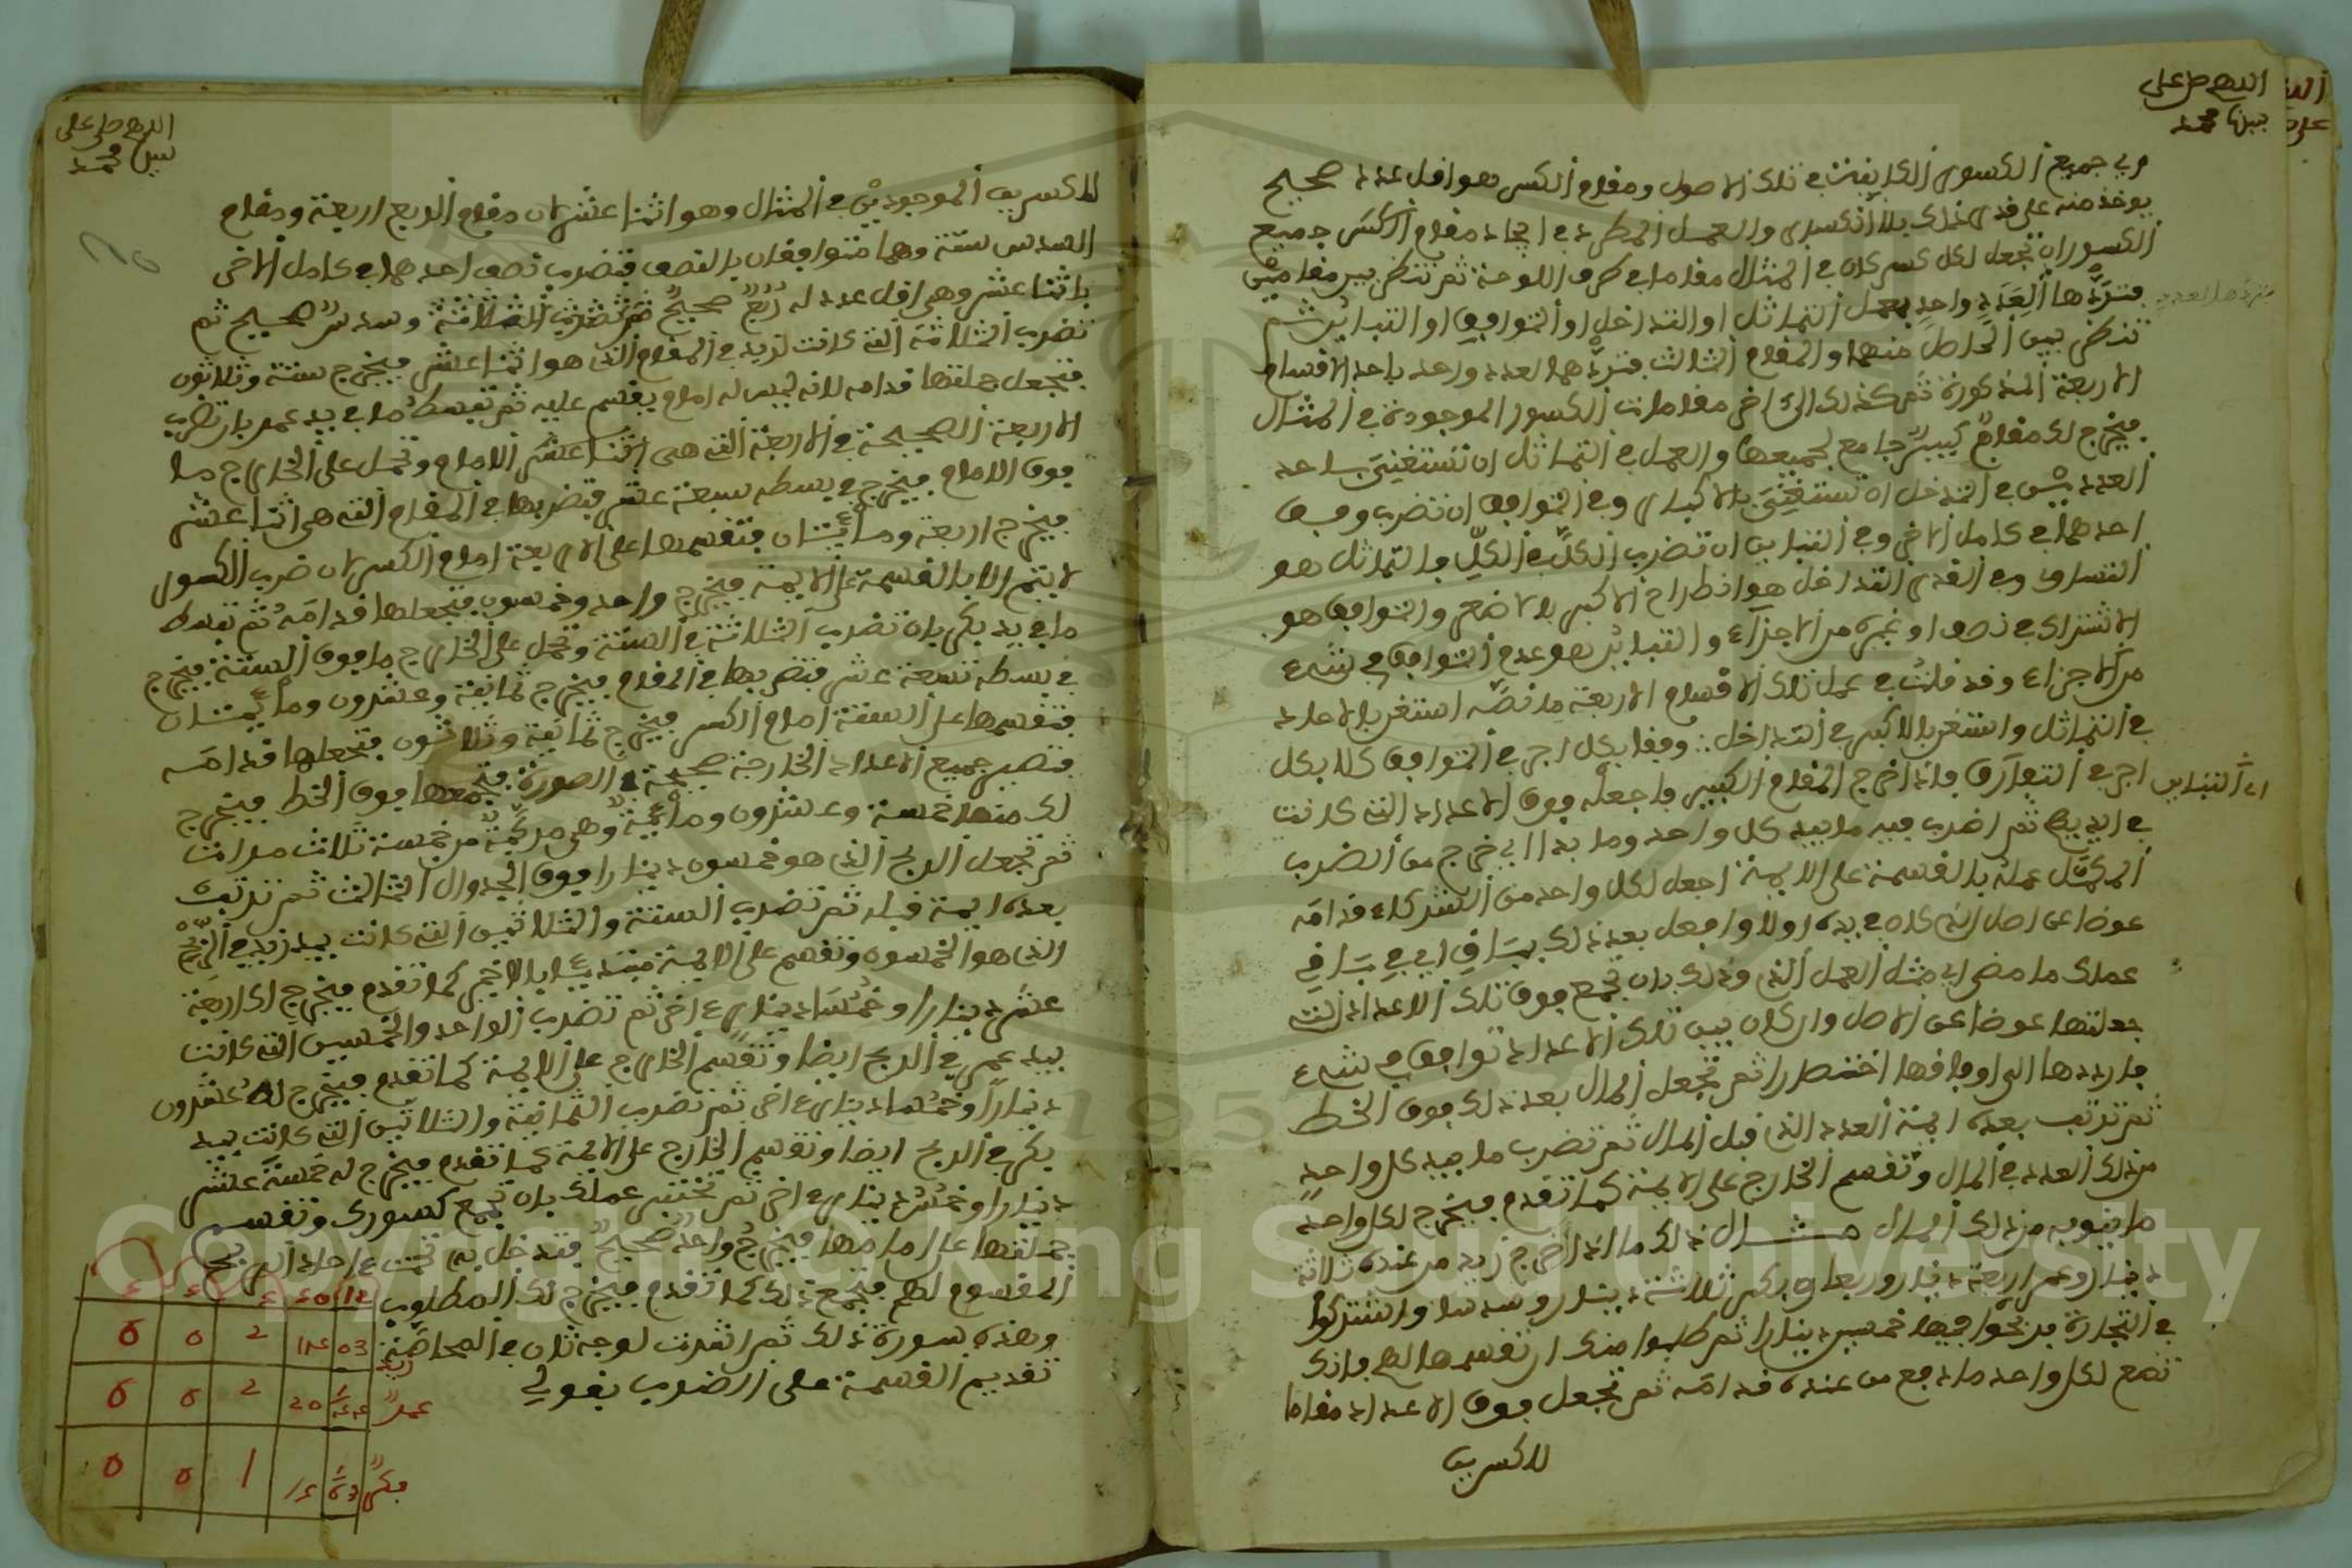 اللهم صل على
نبينا محمد
وفي جميع الكسور الكائنة في تلك الاصول ومقام الكسر هو اقل عدد صحيح
يوخذ منه على قدر ذلك بلا انكسار والعمل المطرد في ايجاد مقام الكسر جميع
الكسور ان تجعل لكل كسر كان في المثال مقاما في طرف اللوحة ثم تنظر بين مقامين
فتردها العدد واحد بعمل التماثل او التداخل او التوافق او التباين ثم
تنظر بين الحاصل منهما والمقام الثالث فتردهما لعدد واحد باحد الاقسام
الاربعة المذكورة ثم كذلك الى اخر مقامات الكسور الموجودة في المثال
فيخرج لك مقام كبير جامع لجميعها والعمل في التماثل ان تستغني باحد
العددين في التداخل ان تستغني بالاكبر وفي التوافق ان تضرب وفق
احدهما في كامل الاخر وفي التباين ان تضرب الكل في الكل والتماثل هو
التساوي في القدر التداخل هو انطراح الاكبر بالاصغر والتوافق هو
الاشتراك في نصف او غيره من الاجزاء والتباين هو عدم التوافق في شيء
من الاجزاء وقد قلت في عمل تلك الاقسام الاربعة ما نصه استغن بالاحاد
في التماثل واستغن بالاكبر في التداخل ∴ وفقا بكل اجر في التوافق كلا بكل
اجر في التفارق فاذا خرج المقام الكبير فاجعله فوق الاعداد التي كانت
اي التباين
في ايديهم ثم اضرب فيه ما بيد كل واحد وما بدا اي خرج من الضرب
المكمل عمله بالقسمة على الايمة اجعل لكل واحد من الشركاء قدامه
عوضا عن اصل الذي كان في يده اولا وافعل بعد ذلك بباقي اي في باقي
عملك ما مضى اي مثل العمل الذي وذلك بان تجمع فوق تلك الاعداد التي
جعلتها عوضا عن الاصل وان كان بين تلك الاعداد توافق في شيء
فارددها الى اوفاقها اختصارا ثم تجعل المال بعد ذلك فوق الخط
ثم ترتب بعده ايمة العدد الذي قبل المال ثم تضرب ما بيد كل واحد
من ذلك العدد في المال وتقسم الخارج على الايمة كما تقدم فيخرج لكل واحد
ما ينوبه من ذلك المال مثال ذلك ما اذا اخرج زيد من عنده ثلاثة
دينار وعمر اربعة دينار وربعا وبكر ثلاثة دينار وسدسا واشتركوا
في التجارة فربحوا فيها خمسين دينارا ثم طلبوا منك ان تقسمها لهم فانك
تضع لكل واحد ما دفع من عنده قدامه ثم تجعل فوق الاعداد مقاما
للكسرين
اللهم صل على
نبينا محمد
للكسرين الموجودين في المثال وهو اثنا عشر لان مقام الربع اربعة ومقام
السدس ستة وهما متوافقان بالنصف فتضرب نصف احدهما في كامل الاخر
باثنا عشر وهي اقل عدد له ربع صحيح وسدس صحيح ثم
تضرب الثلاثة التي كانت لزيد في المقام الذي هو اثنا عشر فيخرج ستة وثلاثون
فتجعل جملتها قدامه لانه ليس له امام يقسم عليه ثم تبسط ما في يد عمر بان تضرب
الاربعة الصحيحة في الاربعة التي هي الامام وتحمل على الخارج ما
فوق الامام فيخرج في بسطه سبعة عشر فتضربها في المقام التي هي اثنا عشر
فيخرج اربعة ومائتان فتقسمها على الاربعة امام الكسر لان ضرب الكسور
لا يتم الا بالقسمة على الايمة فيخرج واحد وخمسون فتجعلها قدامه ثم تبسط
ما في يد بكر بان تضرب الثلاثة في الستة وتحمل على الخارج ما فوق الستة فيخرج
في بسطه تسعة عشر فتضربها في المقام فيخرج ثمانية وعشرون ومائتان
فتقسمها على الستة امام الكسر فيخرج ثمانية وثلاثون فتجعلها قدامه
فتصير جميع الاعداد الخارجة صحيحة الصورة فتجمعها فوق الخط فيخرج
لك منها خمسة وعشرون ومائة وهي مركبة من خمسة ثلاث مرات
ثم تجعل الربح الذي هو خمسون دينارا فوق الجدوال الثالث ثم ترتب
بعده ايمة قبله ثم تضرب الستة والثلاثين التي كانت بيد زيد في الربح
الذي هو الخمسون وتقسم على الايمة مبتديا بالاخير كما تقدم فيخرج له اربعة
عشر دينارا وخمسا دينار اخر ثم تضرب الواحد والخمسين التي كانت
بيد عمر في الربح ايضا وتقسم الخارج على الايمة كما تقدم فيخرج له عشرون
دينارا وخمسا دينار اخر ثم تضرب الثمانية والثلاثين التي كانت بيد
بكر في الربح ايضا وتقسم الخارج على الايمة كما تقدم فيخرج له خمسة عشر
دينارا وخمس دينار اخر ثم تختبر عملك بان تجمع كسورك وتقسم
جملتها على امامها فيخرج واحد صحيح فتدخل به تحت احاد الربح
المقسوم لهم فتجمع ذلك كما تقدم فيخرج لك المطلوب
وهذه صورة ذلك ثم اشرت لوجه ثان في المحاصة
تقديم القسمة على الضرب بقولي
زيد
عمر
بكر
Copyright © King Saud University
1957